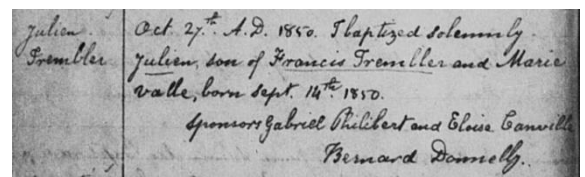 Julien
Trembler
Oct 27.th A.D. 1850. I baptized solemnly
Julien, son of Francis Trembler and Marie
Valle, born Sept. 14th 1850.
Sponsors Gabriel Philibert and Eloise Canville
Bernard Donnelly.